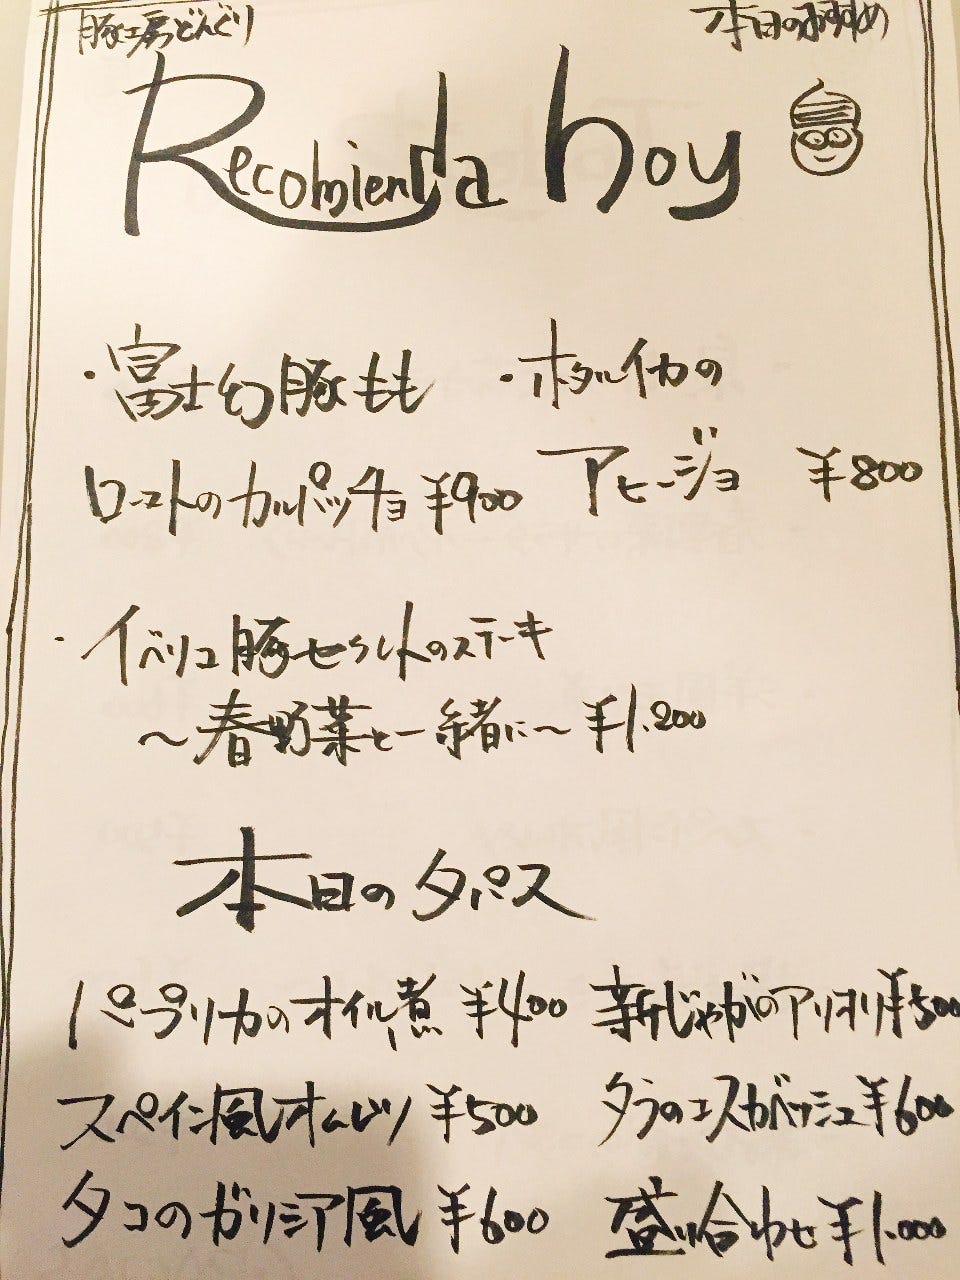 豚工房どんぐり
本日のおすすめ
Recomienda hoy
・富士幻豚もも
ローストのカルパッチョ ¥900
・ホタルイカの
アヒージョ ¥800
・イベリコ豚セクレトのステーキ
～春野菜と一緒に～ ¥1.200
本日のタパス
パプリカのオイル煮 ¥400
新じゃがのアリオリ ¥500
スペイン風オムレツ ¥500
タラのエスカベッシュ ¥600
タコのガリシア風 ¥600
盛り合わせ ¥1.000